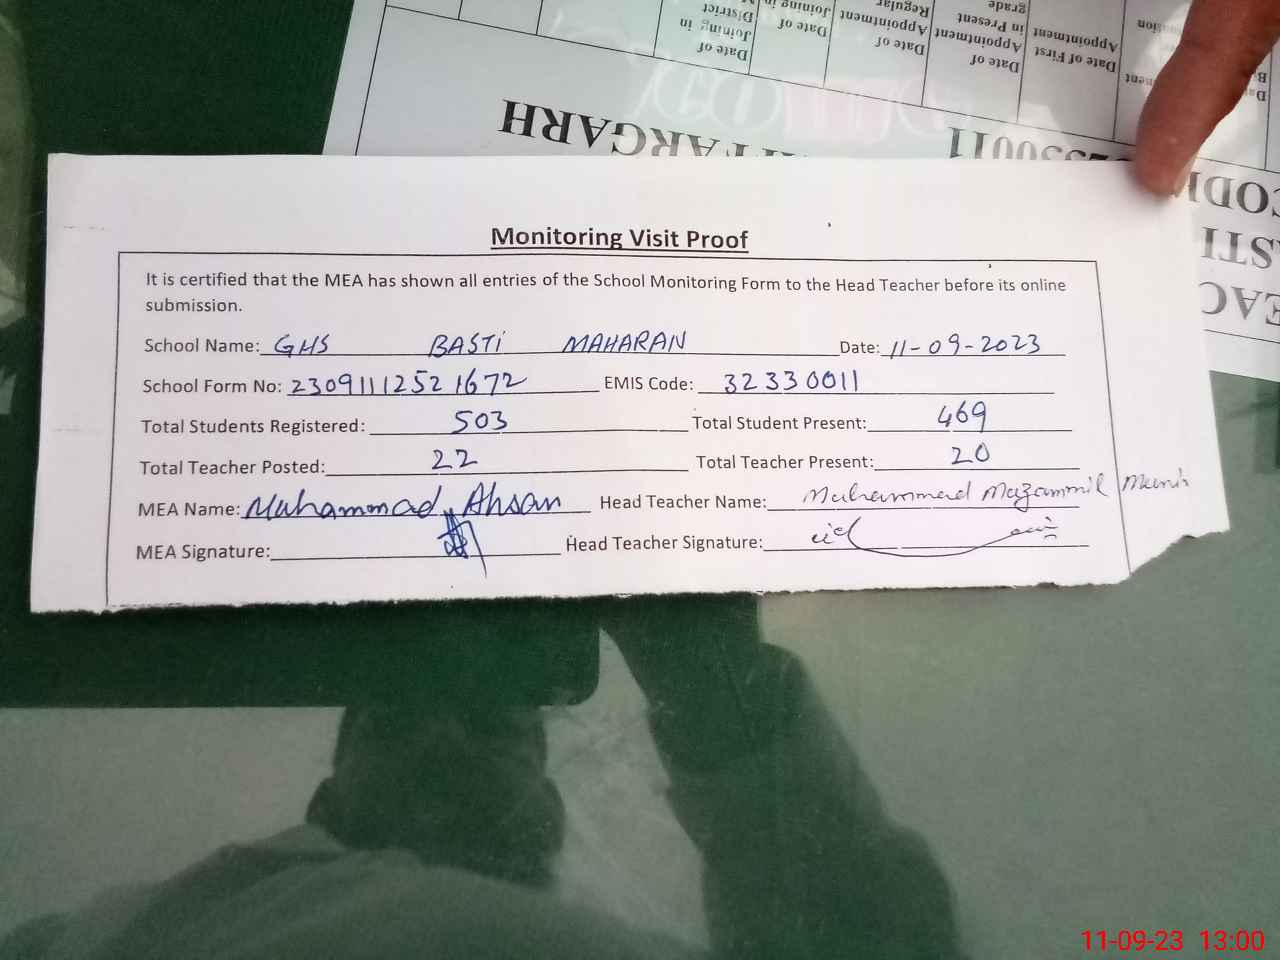 Date of Joining in District
Date of Joining in
Date of Appointment Regular
Date of Appointment in Present grade
Date of First Appointment
HPARGARH
32330011
Monitoring Visit Proof
It is certified that the MEA has shown all entries of the School Monitoring Form to the Head Teacher before its online
submission.
School Name: GHS BASTI MAHARAN Date: 11-09-2023
School Form No: 2309111252 1672 EMIS Code: 32330011
Total Students Registered: 503 Total Student Present: 469
Total Teacher Posted: 22 Total Teacher Present: 20
MEA Name: Muhammad Ahsan Head Teacher Name: Muhammad Mazammil Munir
MEA Signature: Head Teacher Signature:
11-09-23 13:00